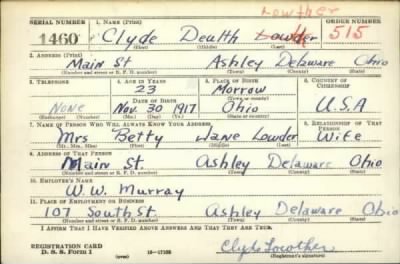 Lowther
SERIAL NUMBER 1. NAME (Print) ORDER NUMBER
1460 Clyde Deulth Lowder 515
(First) (Middle) (Last)
2. ADDRESS (Print)
Main St Ashley Delaware Ohio
(Number and street or R. F. D. number) (Town) (County) (State)
3. TELEPHONE 4. AGE IN YEARS 5. PLACE OF BIRTH 6. COUNTRY OF CITIZENSHIP
23 Morrow
DATE OF BIRTH (Town or county)
None Nov. 30 1917 Ohio U.S.A
(Exchange) (Number) (Mo.) (Day) (Yr.) (State or country)
7. NAME OF PERSON WHO WILL ALWAYS KNOW YOUR ADDRESS 8. RELATIONSHIP OF THAT PERSON
Mrs Betty Jane Lowder Wife
(Mr., Mrs., Miss) (First) (Middle) (Last)
9. ADDRESS OF THAT PERSON
Main St. Ashley Delaware Ohio
(Number and street or R. F. D. number) (Town) (County) (State)
10. EMPLOYER'S NAME
W.W. Murray
11. PLACE OF EMPLOYMENT OR BUSINESS
107 South St. Ashley Delaware Ohio
(Number and street or R. F. D. number) (Town) (County) (State)
I AFFIRM THAT I HAVE VERIFIED ABOVE ANSWERS AND THAT THEY ARE TRUE.
REGISTRATION CARD Clyde Lowther
D. S. S. Form 1 (over) 16—17105 (Registrant's signature)